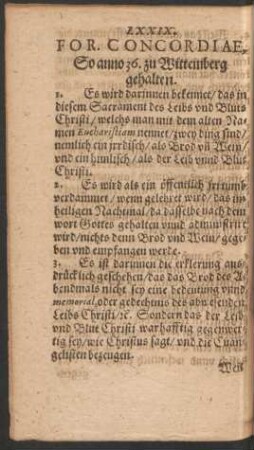 LXXIX.
FOR. CONCORDIAE,
So anno 36. zu Wittenberg
gehalten.
1. Es wird darinnen bekennet/ das in
diesem Sacrament des Leibs vnd Bluts
Christi/ welchs man mit dem alten Na-
men Eucharistiam nennet/ zwey ding sind/
nemlich ein jrrdisch/ als Brod vñ Wein/
vnd ein himlisch/ als der Leib vnnd Blut
Christi.
2. Es wird als ein öffentlich jrrthumb
verdammet/ wenn gelehret wird/ das im
heiligen Nachtmal/ da dasselbe nach dem
wort Gottes gehalten vnnd administrirt
wird/ nichts denn Brod vnd Wein/ gege-
ben vnd empfangen werde.
3. Es ist darinnen die erklerung aus-
drücklich geschehen/ das das Brod des A-
bendmals nicht sey eine bedeutung vnnd
memorial, oder gedechtnis des abwesenden
Leibs Christi/ ꝛc. Sondern das der Leib
vnd Blut Christi warhafftig gegenwer-
tig sey/ wie Christus sagt/ vnd die Euan-
gelisten bezeugen.
Weis